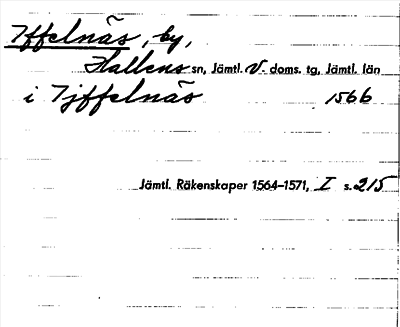 Yffelnäs, by,
Hallens sn, Jämtl. V. doms. tg, Jämtl. län
i Tjffelnäs 1566
Jämtl. Räkenskaper 1564–1571, I s. 215